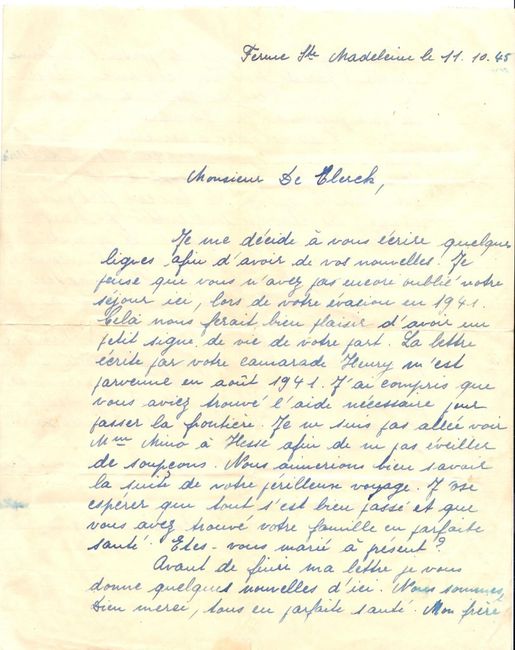 Ferme Ste Madeleine le 11.10.45
Monsieur De Clerck,
Je me décide à vous écrire quelques
lignes afin d'avoir de vos nouvelles. Je
pense que vous n'avez pas encore oublié votre
séjour ici, lors de votre évasion en 1941.
Celà nous ferait bien plaisir d'avoir un
petit signe de vie de votre part. La lettre
écrite par votre camarade Henry m'est
parvenue en août 1941. J'ai compris que
vous aviez trouvé l'aide nécessaire pour
passer la frontière. Je ne suis pas allée voir
Mme Mino à Hesse afin de ne pas éveiller
de soupçons. Nous aimerions bien savoir
la suite de votre périlleuse voyage. J'ose
espérer que tout s'est bien passé et que
vous avez trouvé votre famille en parfaite
santé. Etes-vous marié à présent?
Avant de finir ma lettre je vous
donne quelques nouvelles d'ici. Nous sommes,
bien merci, tous en parfaite santé. Mon frère